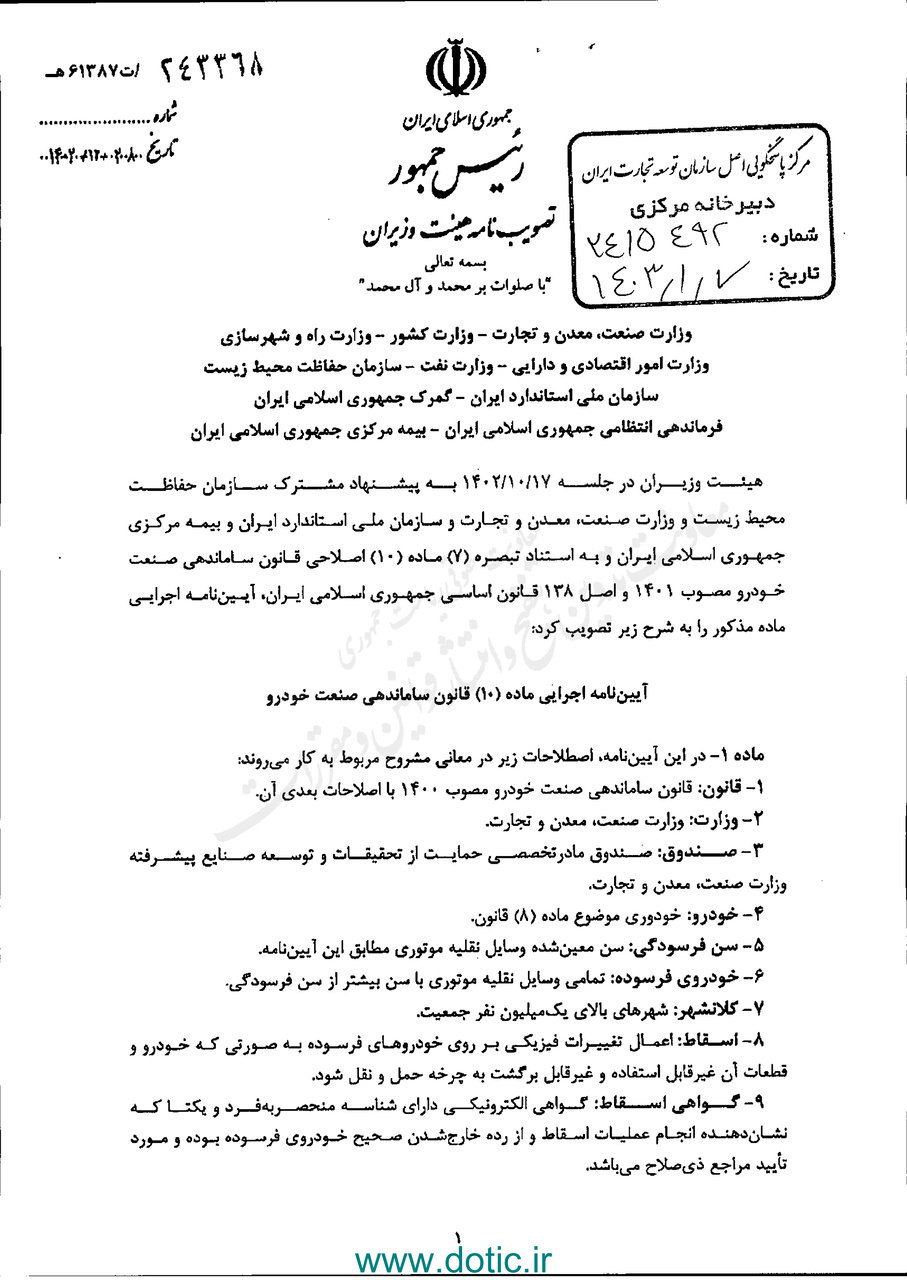 ۲۴۳۳۶۸ /ت۶۱۳۸۷هـ
شماره
تاریخ ۱۴۰۲/۱۲/۰۸
جمهوری اسلامی ایران
رئیس جمهور
تصویب نامه هیئت وزیران
بسمه تعالی
"با صلوات بر محمد و آل محمد"
مرکز پاسخگویی اصل سازمان توسعه تجارت ایران
دبیرخانه مرکزی
شماره: ۲۴۱۵۴۹۲
تاریخ: ۱۴۰۳/۱/۷
وزارت صنعت، معدن و تجارت – وزارت کشور – وزارت راه و شهرسازی
وزارت امور اقتصادی و دارایی – وزارت نفت – سازمان حفاظت محیط زیست
سازمان ملی استاندارد ایران – گمرک جمهوری اسلامی ایران
فرماندهی انتظامی جمهوری اسلامی ایران – بیمه مرکزی جمهوری اسلامی ایران
هیئت وزیران در جلسه ۱۴۰۲/۱۰/۱۷ به پیشنهاد مشترک سازمان حفاظت
محیط زیست و وزارت صنعت، معدن و تجارت و سازمان ملی استاندارد ایران و بیمه مرکزی
جمهوری اسلامی ایران و به استناد تبصره (۷) ماده (۱۰) اصلاحی قانون ساماندهی صنعت
خودرو مصوب ۱۴۰۱ و اصل ۱۳۸ قانون اساسی جمهوری اسلامی ایران، آیین‌نامه اجرایی
ماده مذکور را به شرح زیر تصویب کرد:
آیین‌نامه اجرایی ماده (۱۰) قانون ساماندهی صنعت خودرو
ماده ۱– در این آیین‌نامه، اصطلاحات زیر در معانی مشروح مربوط به کار می‌روند:
۱– قانون: قانون ساماندهی صنعت خودرو مصوب ۱۴۰۰ با اصلاحات بعدی آن.
۲– وزارت: وزارت صنعت، معدن و تجارت.
۳– صندوق: صندوق مادرتخصصی حمایت از تحقیقات و توسعه صنایع پیشرفته
وزارت صنعت، معدن و تجارت.
۴– خودرو: خودروی موضوع ماده (۸) قانون.
۵– سن فرسودگی: سن معین‌شده وسایل نقلیه موتوری مطابق این آیین‌نامه.
۶– خودروی فرسوده: تمامی وسایل نقلیه موتوری با سن بیشتر از سن فرسودگی.
۷– کلانشهر: شهرهای بالای یک‌میلیون نفر جمعیت.
۸– اسقاط: اعمال تغییرات فیزیکی بر روی خودروهای فرسوده به صورتی که خودرو و
قطعات آن غیرقابل استفاده و غیرقابل برگشت به چرخه حمل و نقل شود.
۹– گواهی اسقاط: گواهی الکترونیکی دارای شناسه منحصربه‌فرد و یکتا که
نشان‌دهنده انجام عملیات اسقاط و از رده خارج‌شدن صحیح خودروی فرسوده بوده و مورد
تأیید مراجع ذی‌صلاح می‌باشد.
۱
www.dotic.ir